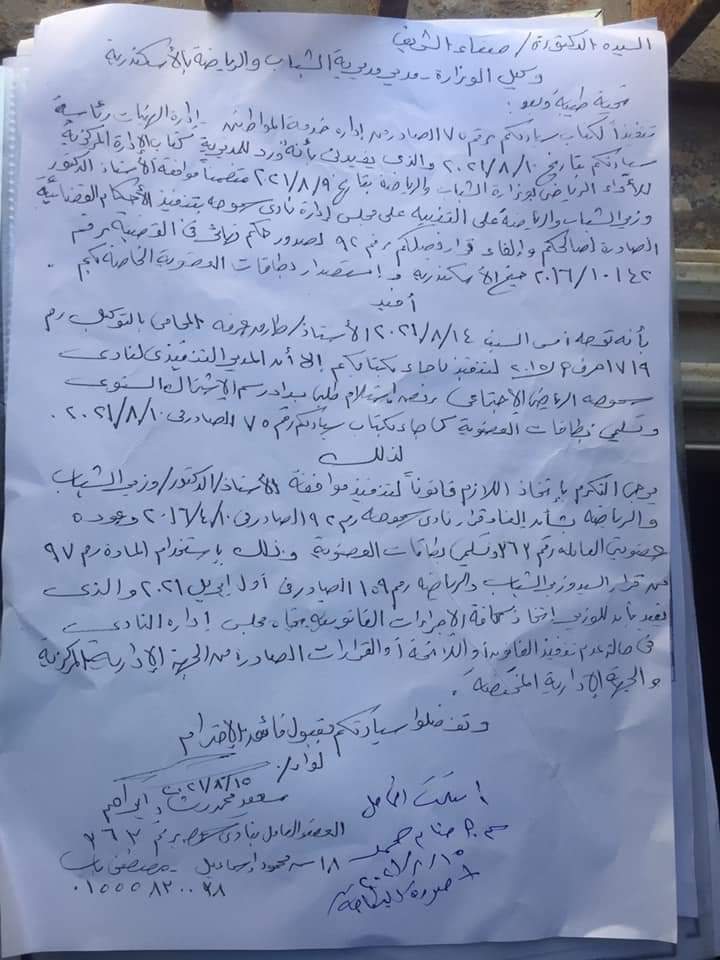 السيده الدكتورة / صفاء الشريف
وكيل الوزارة - مدير مديرية الشباب والرياضة بالأسكندرية
تحية طيبة وبعد :
تنفيذاً لكتاب سيادتكم رقم ٧٥ الصادر من إدارة خدمة المواطنين - إدارة الهيئات رئاسة
سيادتكم بتاريخ ٢٠٢١/٨/١٠ والذى يفيدنى بأنه ورد للمديرية كتاب الإدارة المركزية
للأداء الرياضى بوزارة الشباب والرياضة بتاريخ ٢٠٢١/٨/٩ متضمناً موافقة الأستاذ الدكتور
وزير الشباب والرياضة على التنبيه على مجلس إدارة نادى سموحه بتنفيذ الأحكام القضائية
الصادرة لصالحكم والغاء قرار فصلكم رقم ٩٢ لصدور حكم نهائى فى القضية رقم
٢٠١٦/١٠١٤٢ جنح الأسكندرية و إستصدار بطاقات العضوية الخاصة بكم .
أفيد
بأنه توجه أمس السبت ٢٠٢١/٨/١٤ الأستاذ / طارق عرفه المحامى بالتوكيل رقم
١٧١٩ حرف م / ٢٠١٥ لتنفيذ ما جاء بكتابكم إلا أن المدير التنفيذى لنادى
سموحه الرياضى الإجتماعى رفض إستلام طلب سداد رسم الإشتراك السنوى
وتسليم بطاقات العضوية كما جاء بكتاب سيادتكم رقم ٧٥ الصادر فى ٢٠٢١/٨/١٠ .
لذلك
يرجى التكرم بإتخاذ اللازم قانوناً لتنفيذ موافقة الأستاذ / الدكتور / وزير الشباب
والرياضة بشأن إلغاء قرار نادى سموحه رقم ٩٢ الصادر فى ٢٠١٦/٤/١٠ وعودة
عضويتى العامله رقم ٣٦٢ وتسليم بطاقات العضوية وذلك بإستخدام المادة رقم ٩٧
من قرار السيد وزير الشباب والرياضة رقم ١٥٩ الصادر فى أول ابريل ٢٠٢١ والذى
يفيد بأن للوزير اتخاذ كافة الإجراءات القانونية تجاه مجلس إدارة النادى
فى حالة عدم تنفيذ القانون أو اللائحة أو القرارات الصادرة من الجهة الإدارية المركزية
والجهة الإدارية المختصة .
وتفضلوا سيادتكم بقبول فائق الإحترام
لواء /
٢٠٢١/٨/١٥
سعود محمد رشاد ابراهيم
العضو العامل بنادى سموحه برقم ٣٦٢
١٨ ش محمود إسماعيل - مصطفى باشا
استلمت الأصل
حمد
٢٠٢١/٨/١٥
+ صورة البطاقة